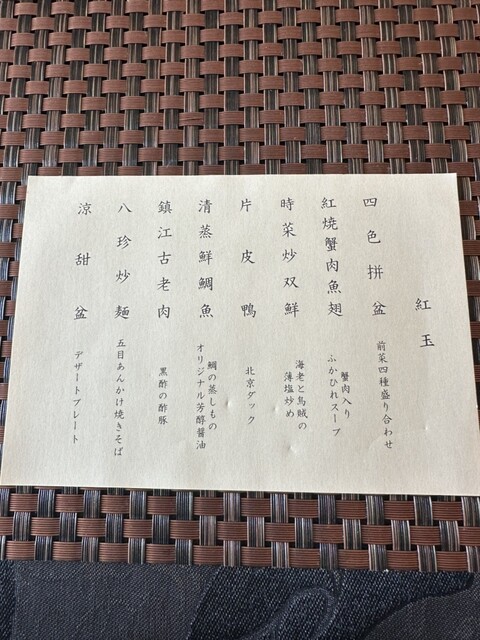 紅玉
四色拼盆
前菜四種盛り合わせ
紅焼蟹肉魚翅
蟹肉入り
ふかひれスープ
時菜炒双鮮
海老と烏賊の
薄塩炒め
片皮鴨
北京ダック
清蒸鮮鯛魚
鯛の蒸しもの
オリジナル芳醇醤油
鎮江古老肉
黒酢の酢豚
八珍炒麺
五目あんかけ焼きそば
涼甜盆
デザートプレート